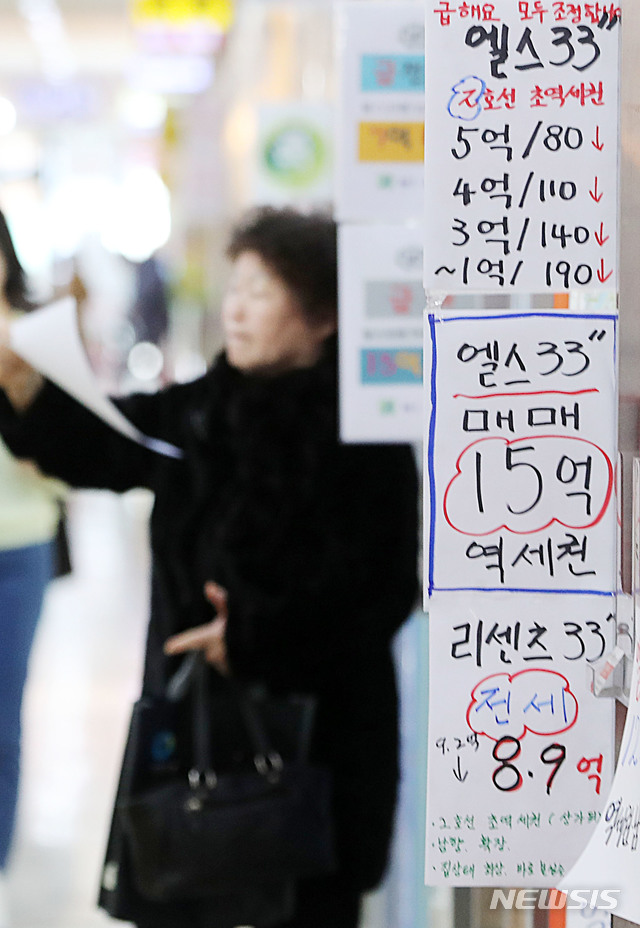 급해요 모두 조정됩니다
엘스 33"
2호선 초역세권
5억/80↓
4억/110↓
3억/140↓
~1억/190↓
엘스 33"
매매
15억
역세권
리센츠 33"
전세
9.2억
↓ 8.9억
·2호선 초역세권 (상가위)
·남향. 확장.
·집상태 최상.
NEWSIS